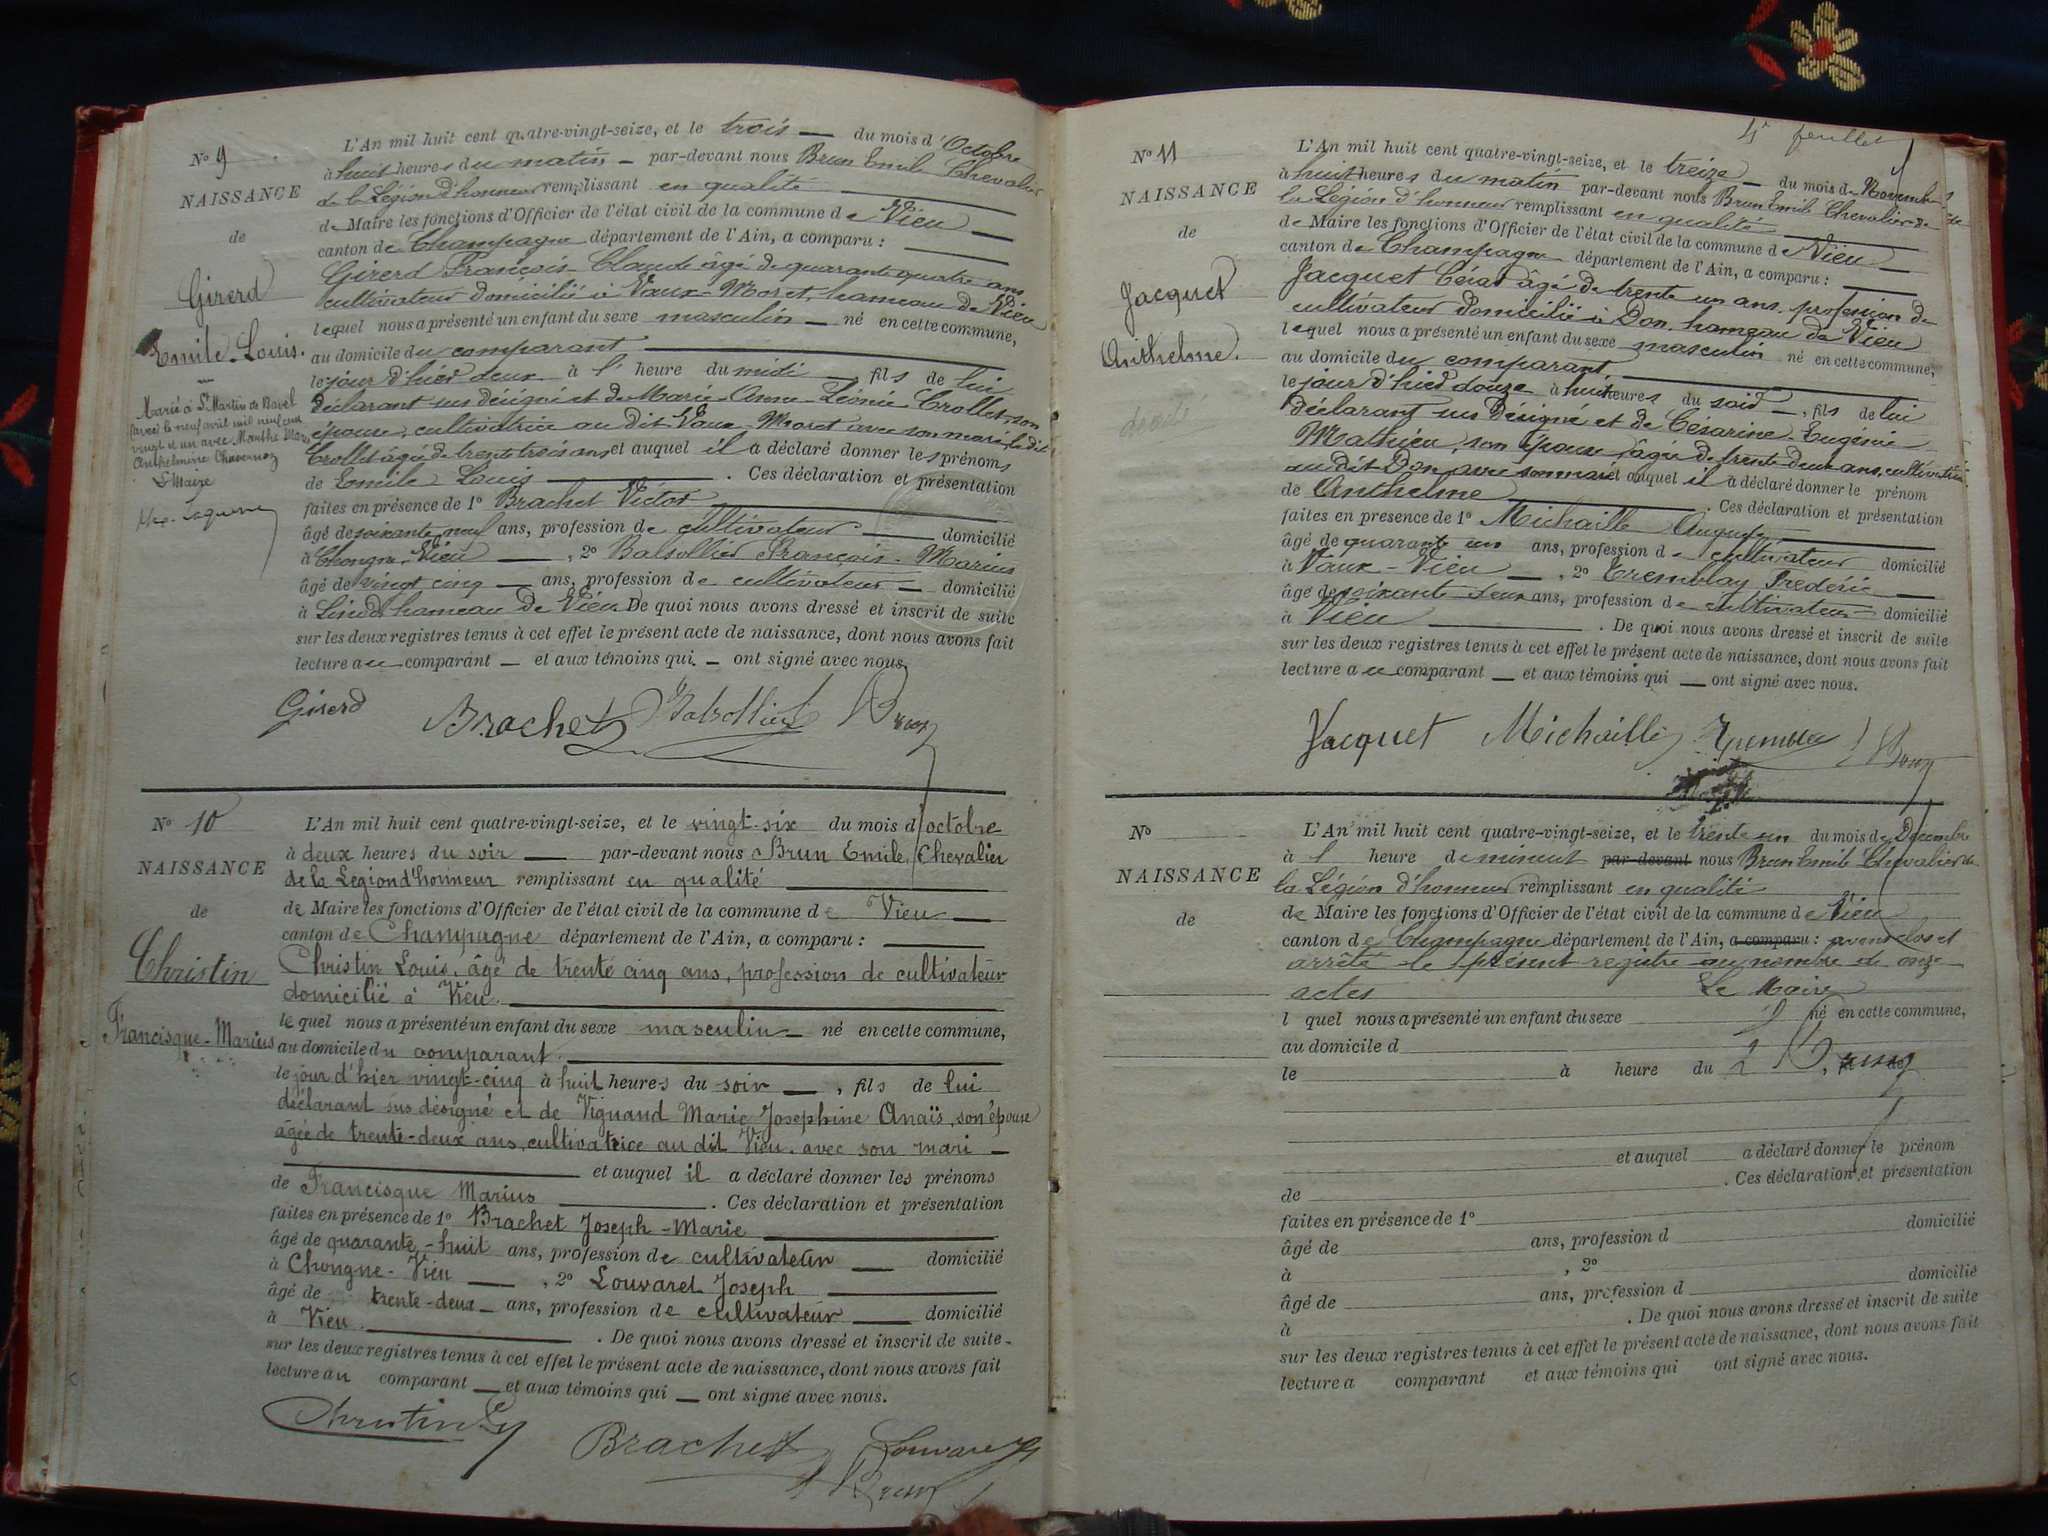 No 9
NAISSANCE
de
Girerd
Emile-Louis.
Marié à St Martin de Bavel
le neuf avril mil neuf cent
vingt et un avec
Anthelmine Chavernoz
Le Maire
L'An mil huit cent quatre-vingt-seize, et le trois du mois d'Octobre
à huit heures du matin par-devant nous Brun Emile Chevalier
de la Légion d'honneur remplissant en qualité
de Maire les fonctions d'Officier de l'état civil de la commune de Vieu
canton de Champagne département de l'Ain, a comparu :
Girerd François Claude âgé de quarante quatre ans
cultivateur domicilié à Vaux-Moret, hameau de Vieu
lequel nous a présenté un enfant du sexe masculin né en cette commune,
au domicile du comparant
le jour d'hier deux à l' heure du midi fils de lui
déclarant sus désigné et de Marie-Anne-Léonie Crollet, son
épouse, cultivatrice au dit Vaux-Moret avec son mari, la dite
Crollet âgée de trente trois ans et auquel il a déclaré donner les prénoms
de Emile Louis . Ces déclaration et présentation
faites en présence de 1o Brachet Victor
âgé de soixante neuf ans, profession de cultivateur domicilié
à Chongne Vieu , 2o Balsollier François-Marius
âgé de vingt cinq ans, profession de cultivateur domicilié
à Linod hameau de Vieu. De quoi nous avons dressé et inscrit de suite
sur les deux registres tenus à cet effet le présent acte de naissance, dont nous avons fait
lecture au comparant et aux témoins qui ont signé avec nous.
Girerd Brachet Balsollier Brun
No 10
NAISSANCE
de
Christin
Francisque-Marius
L'An mil huit cent quatre-vingt-seize, et le vingt-six du mois d'octobre
à deux heures du soir par-devant nous Brun Emile, Chevalier
de la Legion d'honneur remplissant en qualité
de Maire les fonctions d'Officier de l'état civil de la commune de Vieu
canton de Champagne département de l'Ain, a comparu :
Christin Louis, âgé de trente cinq ans, profession de cultivateur
domicilié à Vieu.
lequel nous a présenté un enfant du sexe masculin né en cette commune,
au domicile du comparant.
le jour d'hier vingt-cinq à huit heures du soir , fils de lui
déclarant sus désigné et de Vignand Marie Josephine Anaïs, son épouse
âgée de trente-deux ans, cultivatrice au dit Vieu. avec son mari
et auquel il a déclaré donner les prénoms
de Francisque Marius . Ces déclaration et présentation
faites en présence de 1o Brachet Joseph-Marie
âgé de quarante-huit ans, profession de cultivateur domicilié
à Chongne-Vieu , 2o Louvaret Joseph
âgé de trente-deux ans, profession de cultivateur domicilié
à Vieu. . De quoi nous avons dressé et inscrit de suite
sur les deux registres tenus à cet effet le présent acte de naissance, dont nous avons fait
lecture au comparant et aux témoins qui ont signé avec nous.
Christin Brachet Louvaret
Brun
4e feuillet
No 11
NAISSANCE
de
Jacquet
Anthelme.
L'An mil huit cent quatre-vingt-seize, et le treize du mois de Novembre
à huit heures du matin par-devant nous Brun Emile Chevalier de
la Légion d'honneur remplissant en qualité
de Maire les fonctions d'Officier de l'état civil de la commune de Vieu
canton de Champagne département de l'Ain, a comparu :
Jacquet César âgé de trente un ans, profession de
cultivateur domicilié à Don, hameau de Vieu
lequel nous a présenté un enfant du sexe masculin né en cette commune,
au domicile du comparant
le jour d'hier douze à huit heures du soir , fils de lui
déclarant sus désigné et de Césarine-Eugénie
Mathieu, son épouse, âgée de trente deux ans, cultivatrice
au dit Don avec son mari et auquel il a déclaré donner le prénom
de Anthelme . Ces déclaration et présentation
faites en presence de 1o Michaille Auguste
âgé de quarante un ans, profession de cultivateur domicilié
à Vaux-Vieu , 2o Tremblay Frédéric
âgé de soixante deux ans, profession de cultivateur domicilié
à Vieu . De quoi nous avons dressé et inscrit de suite
sur les deux registres tenus à cet effet le présent acte de naissance, dont nous avons fait
lecture au comparant et aux témoins qui ont signé avec nous.
Jacquet Michaille Tremblay Brun
No
NAISSANCE
de
L'An mil huit cent quatre-vingt-seize, et le trente un du mois de Décembre
à l heure de minuit par-devant nous Brun Emile Chevalier de
la Légion d'honneur remplissant en qualité
de Maire les fonctions d'Officier de l'état civil de la commune de Vieu
canton de Champagne département de l'Ain, a comparu : avons clos et
arrêté le présent registre au nombre de onze
actes Le Maire
l quel nous a présenté un enfant du sexe né en cette commune,
au domicile d
le à heure du , fil de
Brun
et auquel a déclaré donner le prénom
de . Ces déclaration et présentation
faites en présence de 1o
âgé de ans, profession d domicilié
à , 2o
âgé de ans, profession d domicilié
à . De quoi nous avons dressé et inscrit de suite
sur les deux registres tenus à cet effet le présent acte de naissance, dont nous avons fait
lecture a comparant et aux témoins qui ont signé avec nous.